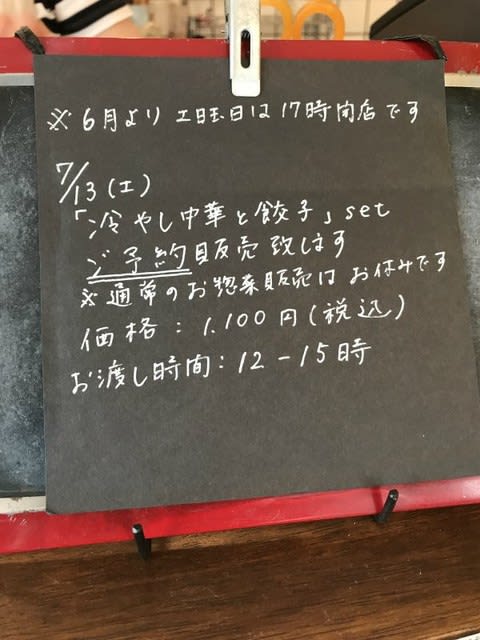 ※6月より 土曜日は17時閉店です
7/13(土)
「冷やし中華と餃子」set
ご予約販売致します
※通常のお惣菜販売はお休みです
価格:1.100円(税込)
お渡し時間:12-15時